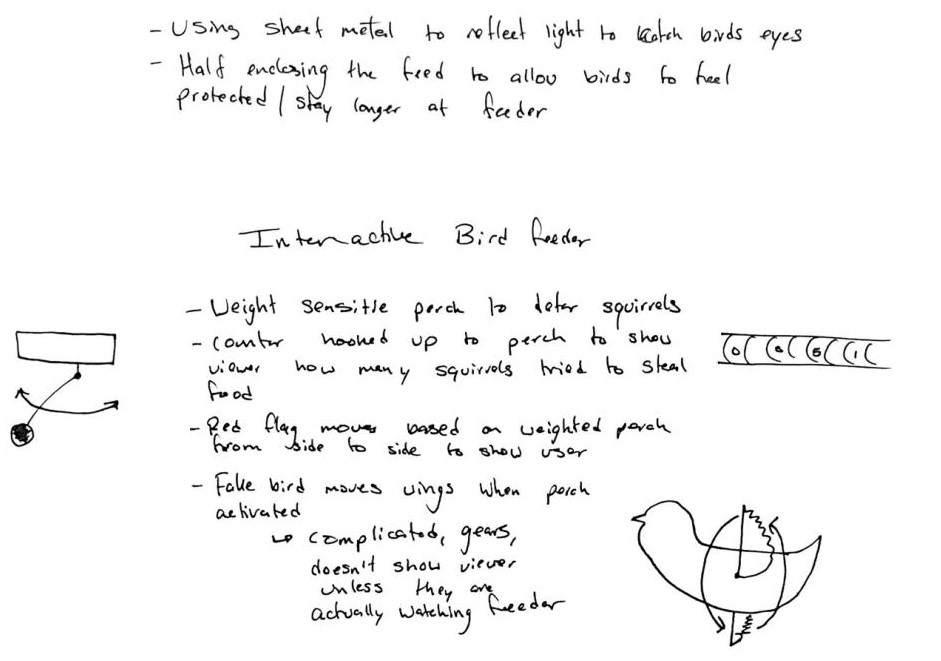 - Using sheet metal to reflect light to catch birds eyes
- Half enclosing the feed to allow birds to feel
protected / stay longer at feeder
Interactive Bird feeder
- Weight sensitive perch to deter squirrels
- counter hooked up to perch to show
viewer how many squirrels tried to steal
food
- Red flag moves based on weighted perch
from side to side to show user
- Fake bird moves wings when perch
activated
↳ complicated, gears,
doesn't show viewer
unless they are
actually watching feeder